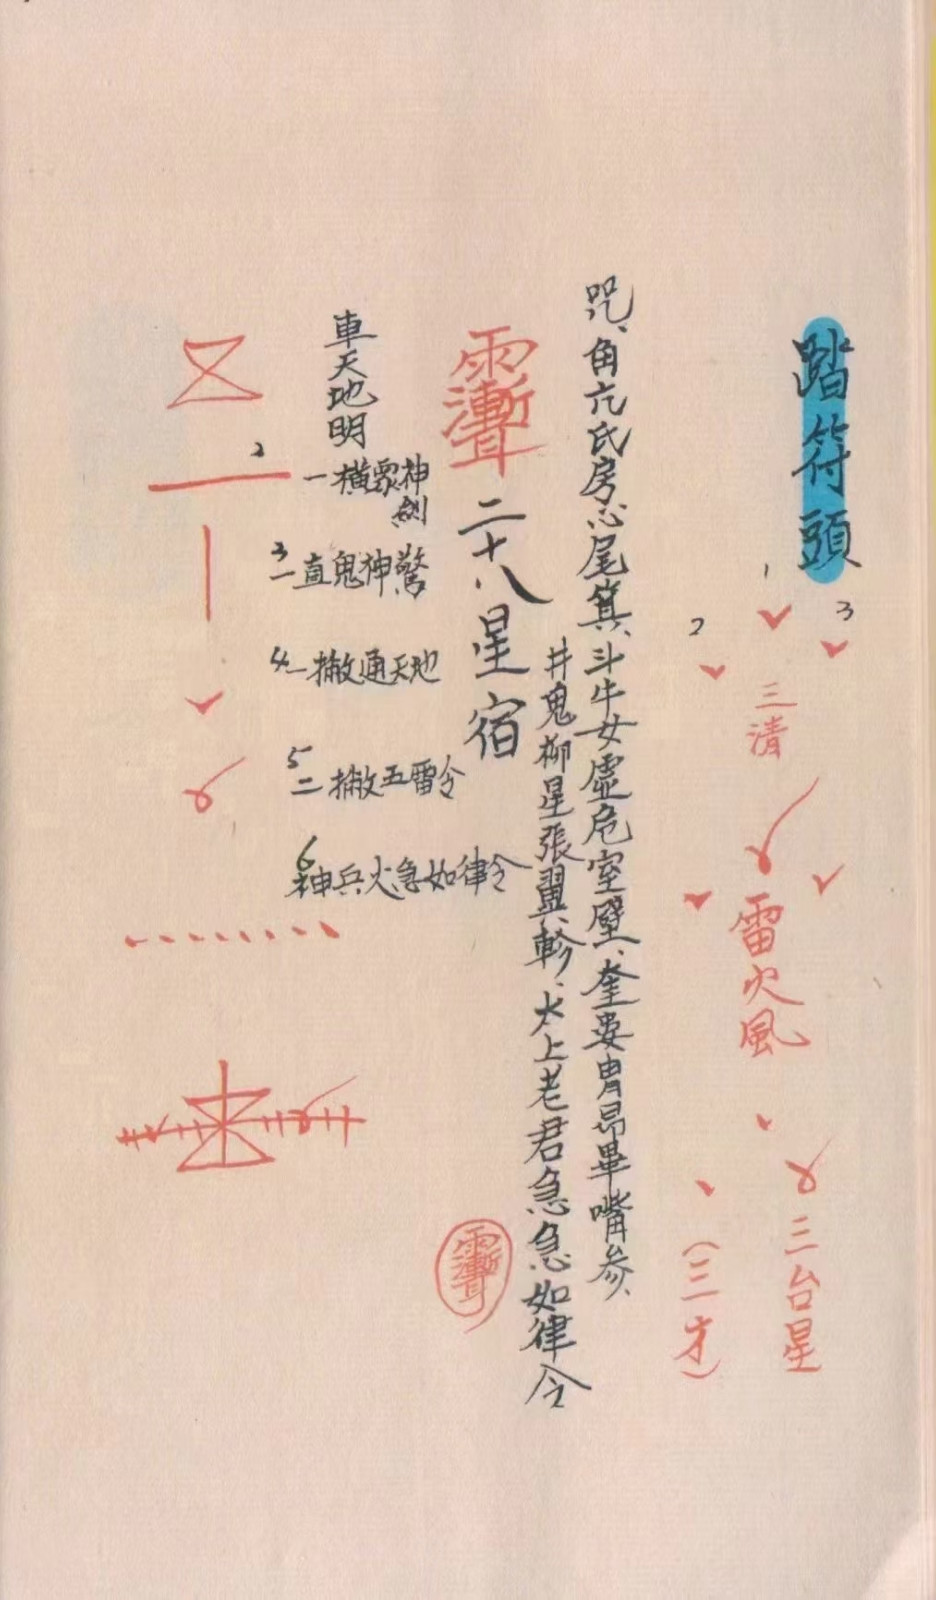 踏符頭
1
2
3
三清
雷火風
三台星
（三才）
咒、角亢氐房心尾箕、斗牛女虛危室壁、奎婁胃昴畢嘴參、
井鬼柳星張翼軫、太上老君急急如律令
二十八星宿
車天地明
2
一橫眾神劍
3
一直鬼神驚
4
一撇通天地
5
二撇五雷令
6
神兵火急如律令